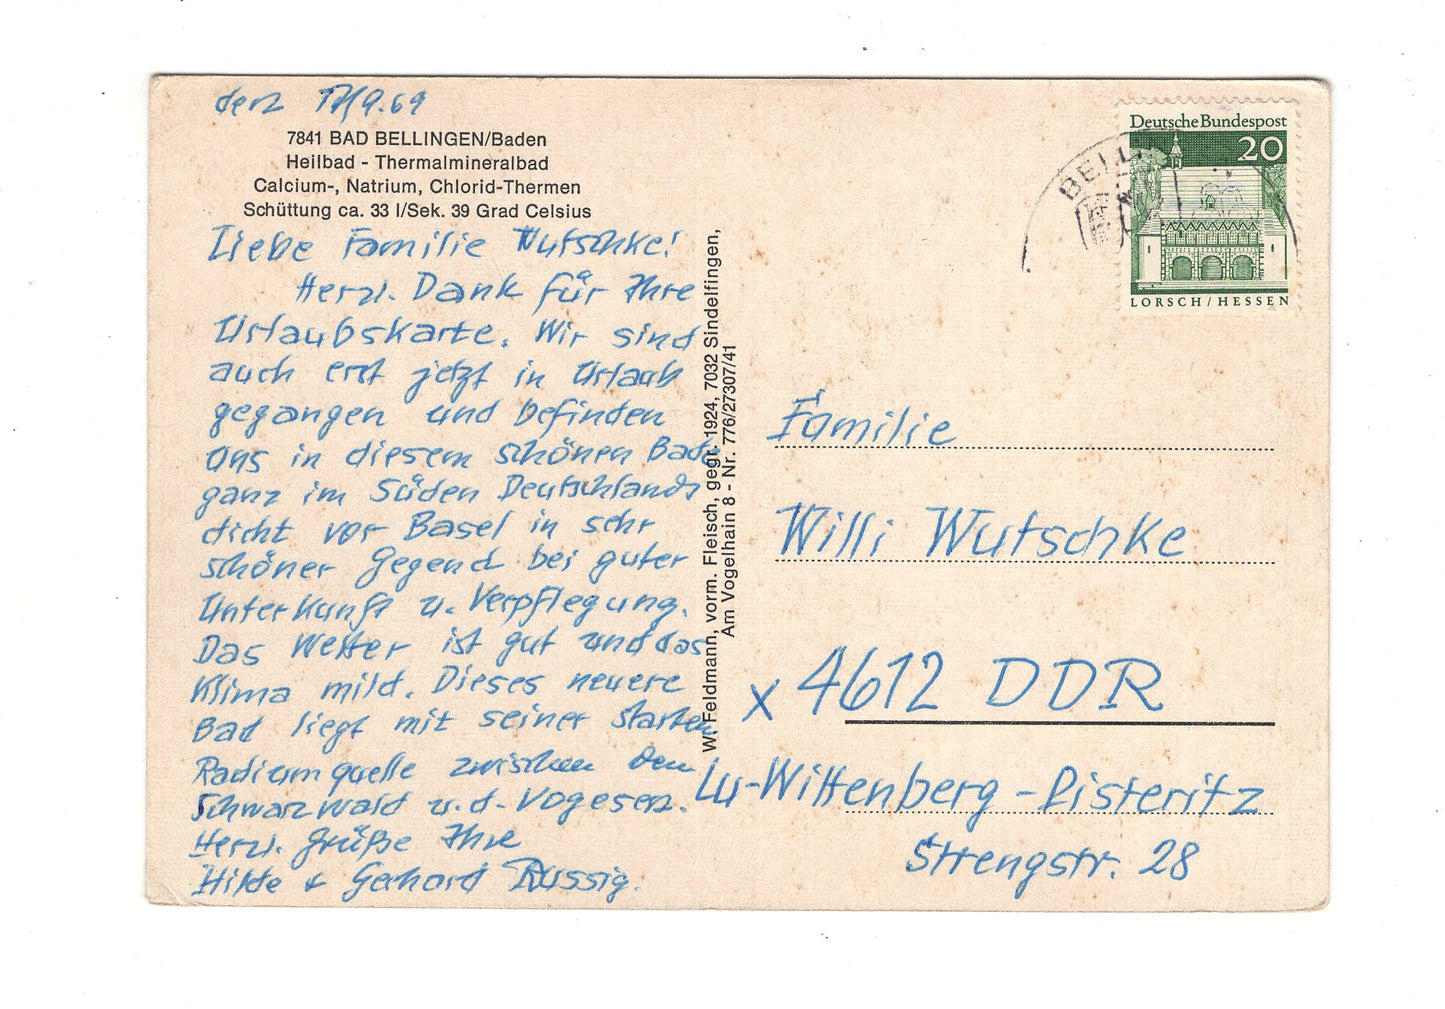 den 17/9.69
7841 BAD BELLINGEN/Baden
Heilbad - Thermalmineralbad
Calcium-, Natrium, Chlorid-Thermen
Schüttung ca. 33 l/Sek. 39 Grad Celsius
Liebe Familie Wutschke!
Herzl. Dank für Ihre
Urlaubskarte. Wir sind
auch erst jetzt in Urlaub
gegangen und befinden
uns in diesem schönen Bade
ganz im Süden Deutschlands
dicht vor Basel in sehr
schöner Gegend bei guter
Unterkunft u. Verpflegung.
Das Wetter ist gut und das
Klima mild. Dieses neuere
Bad liegt mit seiner starken
Radiumquelle zwischen dem
Schwarzwald u. d. Vogesen.
Herzl. Grüße Ihre
Hilde + Gerhard Russig.
W. Feldmann, vorm. Fleisch, gegr. 1924, 7032 Sindelfingen,
Am Vogelhain 8 - Nr. 776/27307/41
BELL
Deutsche Bundespost
20
LORSCH/HESSEN
Familie
Willi Wutschke
x 4612 DDR
Lu-Wittenberg - Pisteritz
Strengstr. 28